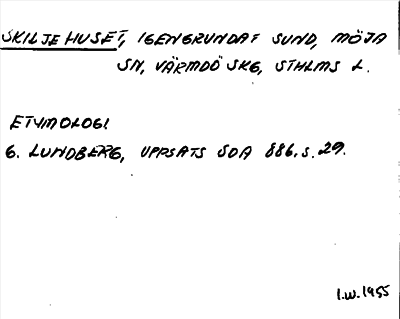 SKILJEHUSET, IGENGRUNDAT SUND, MÖJA
SN, VÄRMDÖ SKG, STHLMS L.
ETYMOLOGI
G. LUNDBERG, UPPSATS SOA 886, S. 29.
I.W. 1955